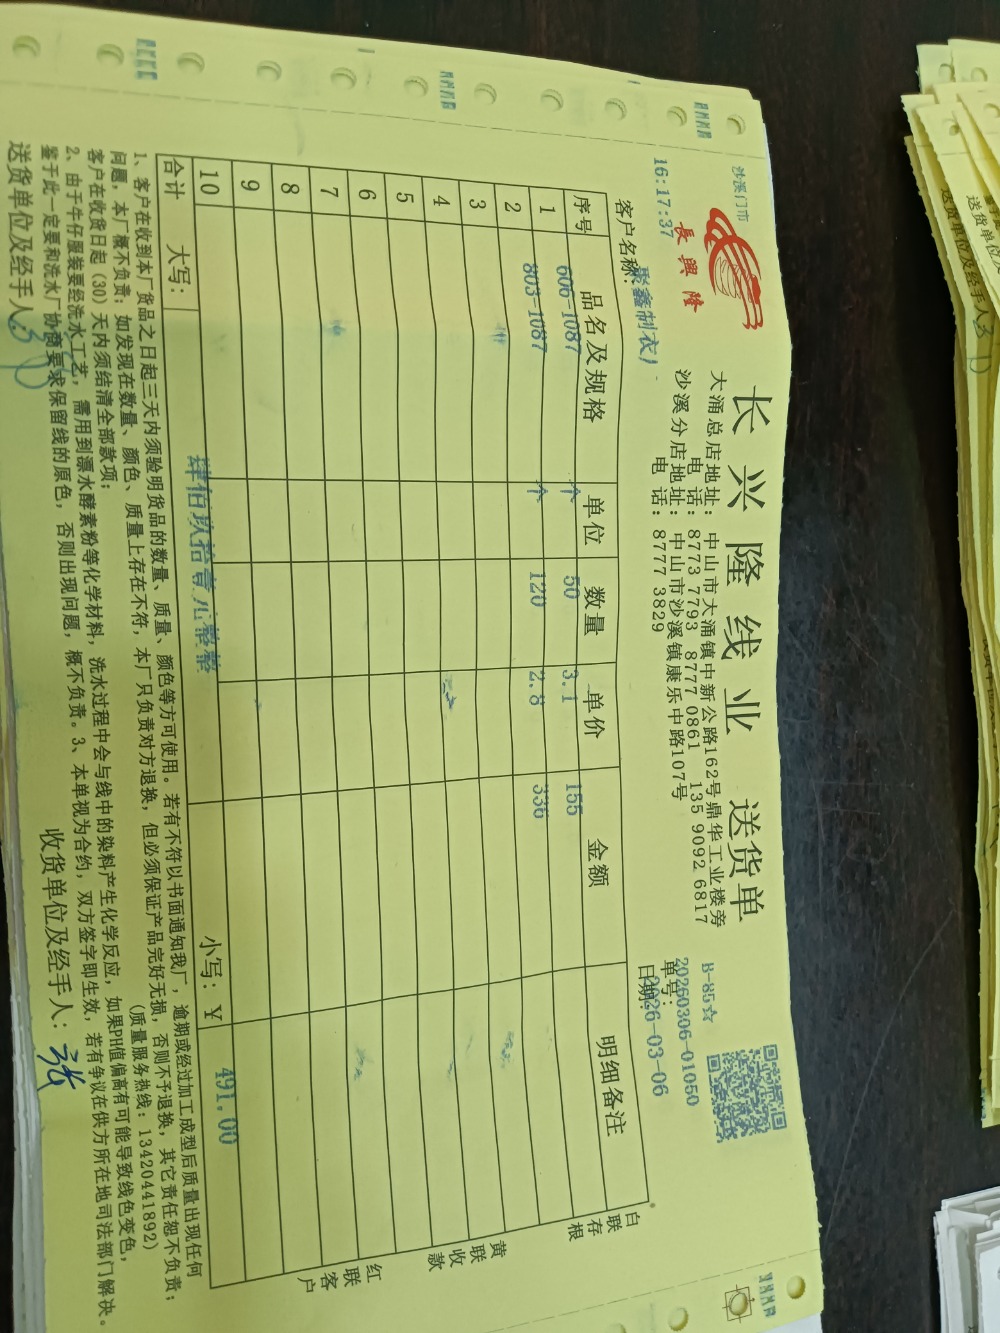 沙溪门市
長興隆
16:17:37
长兴隆线业 送货单
大涌总店地址：中山市大涌镇中新公路162号鼎华工业楼旁
电 话：8773 7793 8777 0861 135 9092 6817
沙溪分店地址：中山市沙溪镇康乐中路107号
电 话：8777 3829
B-85☆
单号：20260306-01050
日期：2026-03-06
客户名称：聚鑫制衣厂
序号 品名及规格 单位 数量 单价 金额 明细备注
1 606-1087 个 50 3.1 155
803-1087 个 120 2.8 336
2
3
4
5
6
7
8
9
10
合计 大写：肆佰玖拾壹元整 小写：￥ 491.00
白联存根
黄联收款
红联客户
1、客户在收到本厂货品之日起三天内须验明货品的数量、质量、颜色等方可使用。若有不符以书面通知我厂，逾期或经过加工成型后质量出现任何
问题，本厂概不负责；如发现在数量、颜色、质量上存在不符，本厂只负责对方退换，但必须保证产品完好无损，否则不予退换，其它责任恕不负责；
客户在收货日起（30）天内须结清全部款项； （质量服务热线：13420441892）
2、由于牛仔服装要经洗水工艺，需用到漂水酵素粉等化学材料，洗水过程中会与线中的染料产生化学反应，如果PH值偏高有可能导致线色变色，
鉴于此一定要和洗水厂协商要求保留线的原色，否则出现问题，概不负责。3、本单视为合约，双方签字即生效，若有争议在供方所在地司法部门解决。
送货单位及经手人： 收货单位及经手人：张
送货单位及经手人
送货单位及经手人